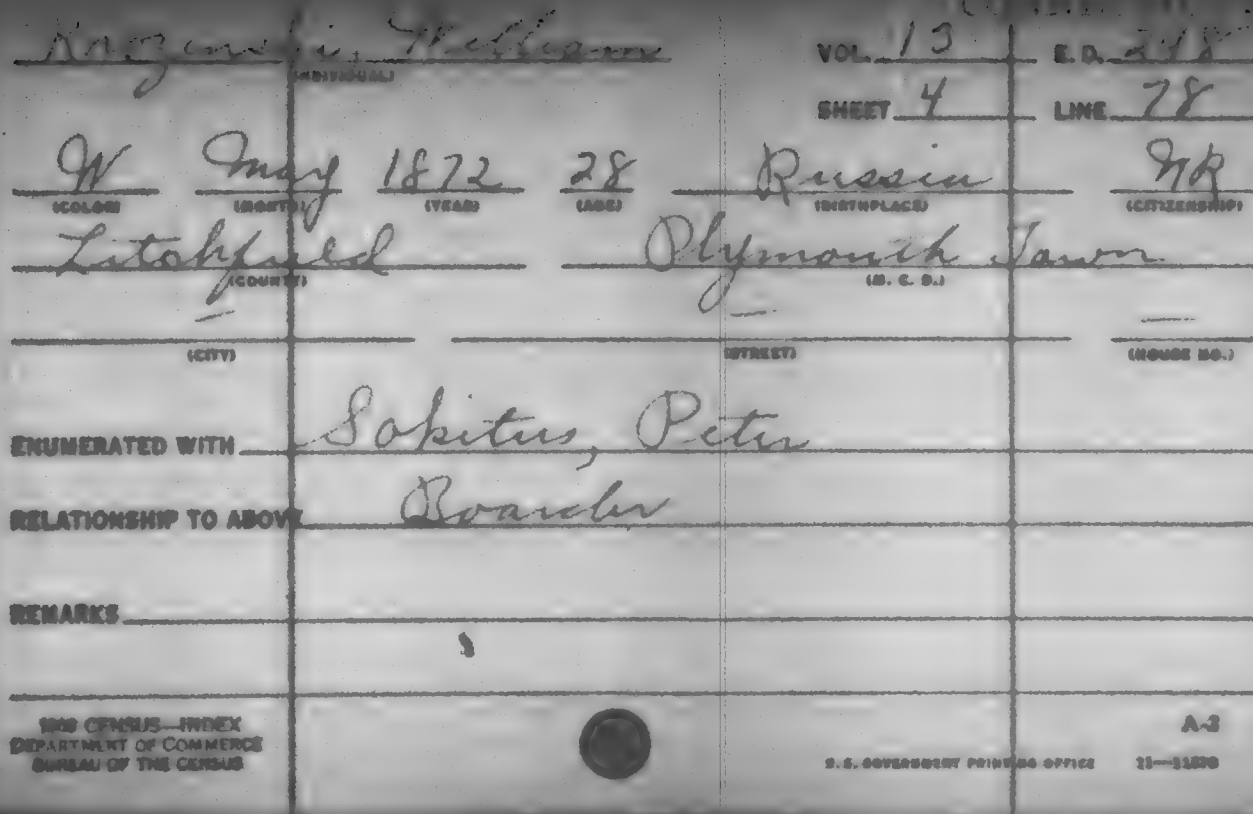 William VOL. 13 E.D. 248
(INDIVIDUAL)
SHEET 4 LINE 78
W May 1872 28 Russia NR
(COLOR) (MONTH) (YEAR) (AGE) (BIRTHPLACE) (CITIZENSHIP)
Litchfield Plymouth Town
(COUNTY) (M. C. D.)
— — —
(CITY) (STREET) (HOUSE NO.)
ENUMERATED WITH Sokitus, Peter
RELATIONSHIP TO ABOVE Boarder
REMARKS
1900 CENSUS—INDEX A-2
DEPARTMENT OF COMMERCE
BUREAU OF THE CENSUS U.S. GOVERNMENT PRINTING OFFICE